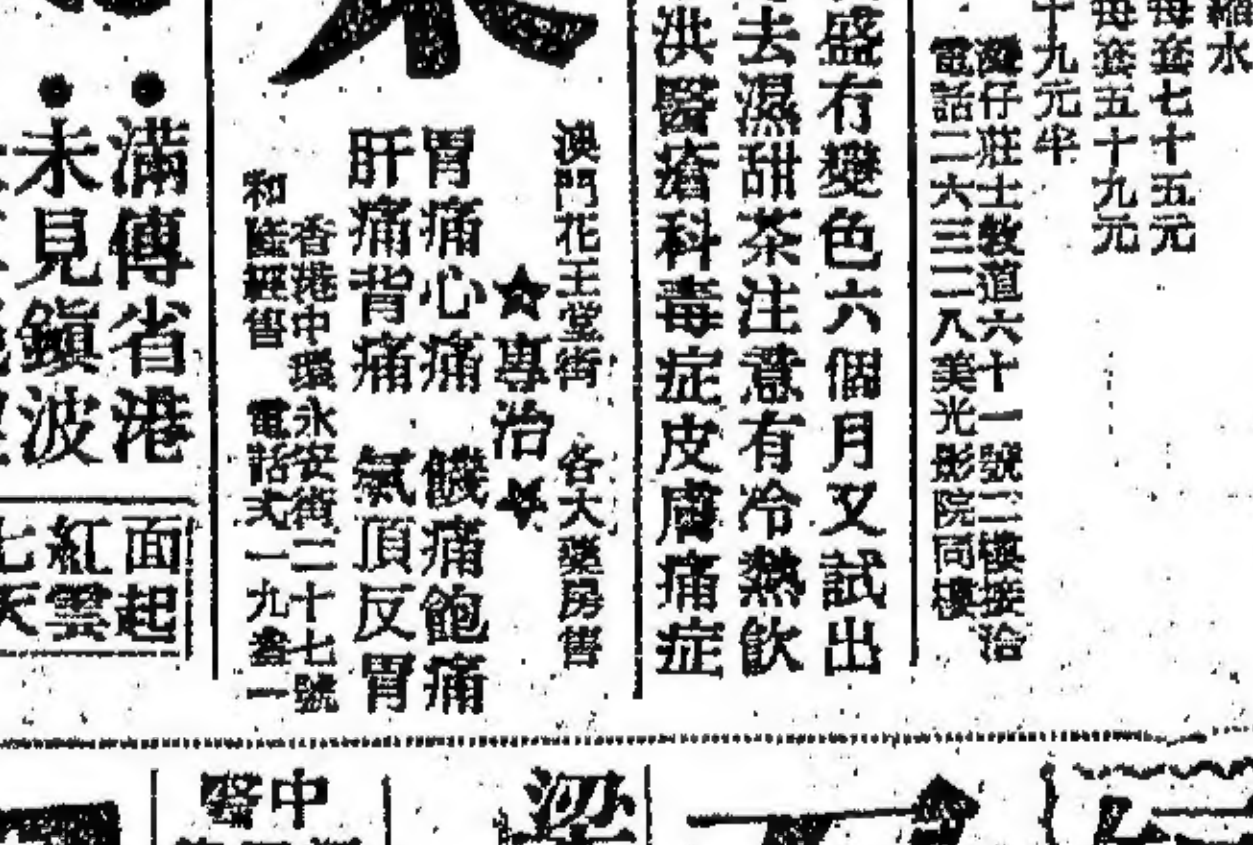 縮水
每套七十五元
每套五十九元
十九元半
灣仔莊士敦道六十一號二樓接洽
電話二六三二八美光影院同樓
盛冇變色六個月又試出
去濕甜茶注意有冷熱飲
洪醫瘡科毒症皮膚痛症
澳門花王堂街 各大藥房售
★專治★
胃痛心痛 饑痛飽痛
肝痛背痛 氣頂反胃
香港中環永安街二十七號
和隆經售 電話弍一九叁一
滿傳省港
未見鎮波
面起
紅雲
七天
中醫
梁